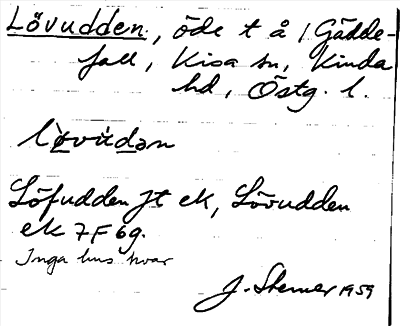 Lövudden, öde t å 1 Gädde-
fall, Kisa sn, Kinda
hd, Östg. l.
lövùdən
Löfudden Jt ek, Lövudden
ek 7F 6g.
Inga hus kvar
J. Sterner 1959